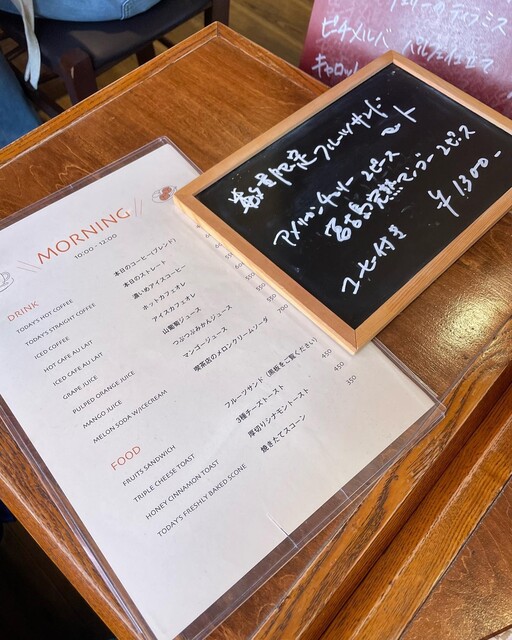 ピーチメルバ パルフェ仕立て
キャロット
数量限定フルーツサンド
アメリカンチェリー 2ピース
宮古島完熟マンゴー 2ピース
コーヒー付き ¥1300-
MORNING
10:00 - 12:00
DRINK
TODAY'S HOT COFFEE 本日のコーヒー(ブレンド)
TODAY'S STRAIGHT COFFEE 本日のストレート
ICED COFFEE 濃いめアイスコーヒー
HOT CAFE AU LAIT ホットカフェオレ
ICED CAFE AU LAIT アイスカフェオレ
GRAPE JUICE 山葡萄ジュース
PULPED ORANGE JUICE つぶつぶみかんジュース
MANGO JUICE マンゴージュース
MELON SODA W/ICECREAM 喫茶店のメロンクリームソーダ 700
FOOD
FRUITS SANDWICH フルーツサンド (黒板をご覧ください)
TRIPLE CHEESE TOAST 3種チーズトースト 450
HONEY CINNAMON TOAST 厚切りシナモントースト 450
TODAY'S FRESHLY BAKED SCONE 焼きたてスコーン 350